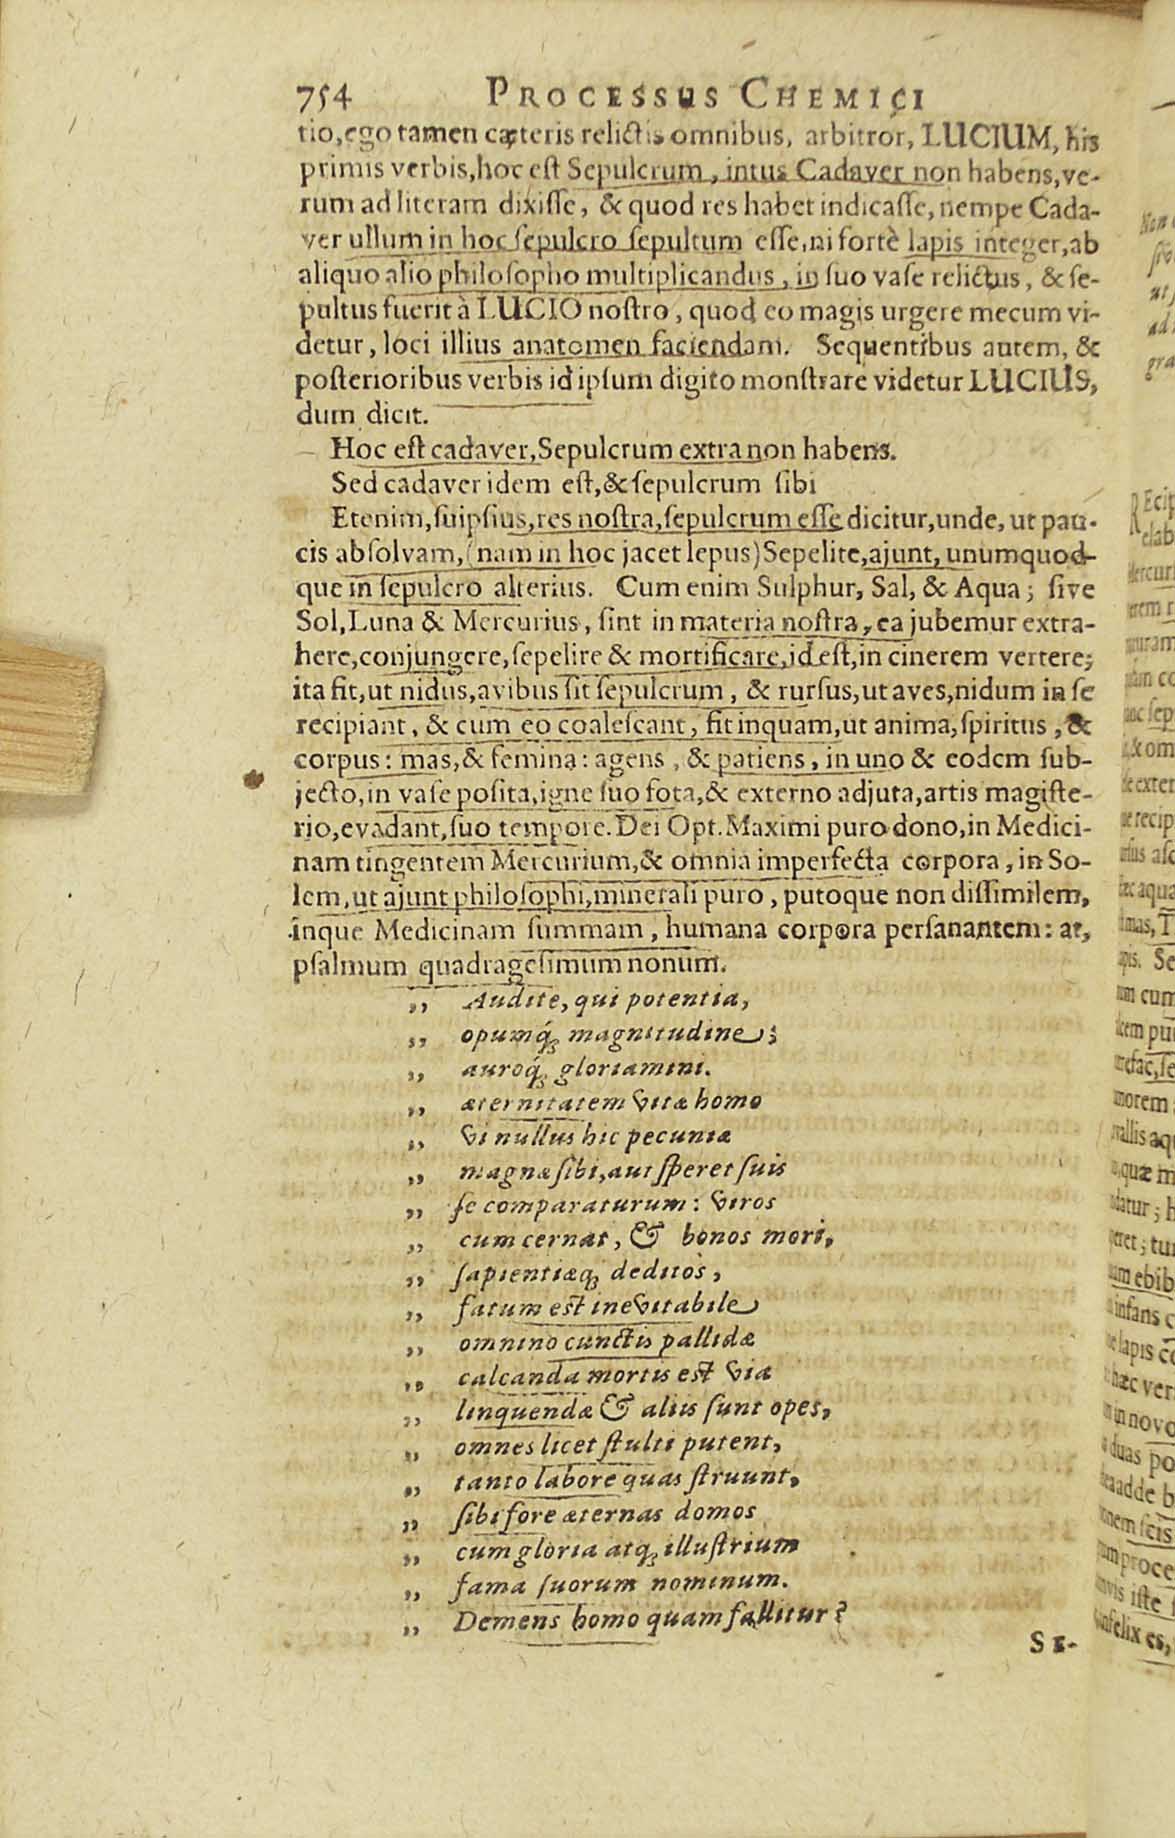 754 PROCESSUS CHEMICI
tio, ego tamen cæteris relictis omnibus, arbitror, LUCIUM, his
primis verbis, hoc est Sepulcrum, intus Cadaver non habens, ve-
rum ad literam dixisse, & quod res habet indicasse, nempe Cada-
ver ullum in hoc sepulcro sepultum esse, ni fortè lapis integer, ab
aliquo alio philosopho multiplicandus, in suo vase relictus, & se-
pultus fuerit à LUCIO nostro, quod eo magis urgere mecum vi-
detur, loci illius anatomen faciendam. Sequentibus autem, &
posterioribus verbis id ipsum digito monstrare videtur LUCIUS,
dum dicit.
Hoc est cadaver, Sepulcrum extra non habens.
Sed cadaver idem est, & sepulcrum sibi
Etenim, suipsius, res nostra, sepulcrum esse dicitur, unde, ut pau-
cis absolvam, (nam in hoc jacet lepus) Sepelite, ajunt, unumquod-
que in sepulcro alterius. Cum enim Sulphur, Sal, & Aqua; sive
Sol, Luna & Mercurius, sint in materia nostra, ea jubemur extra-
here, conjungere, sepelire & mortificare, id est, in cinerem vertere;
ita fit, ut nidus, avibus sit sepulcrum, & rursus, ut aves, nidum in se
recipiant, & cum eo coalescant, fit inquam, ut anima, spiritus, &
corpus: mas, & femina: agens, & patiens, in uno & eodem sub-
jecto, in vase posita, igne suo fota, & externo adjuta, artis magiste-
rio, evadant, suo tempore. Dei Opt. Maximi puro dono, in Medici-
nam tingentem Mercurium, & omnia imperfecta corpora, in So-
lem, ut ajunt philosophi, minerali puro, putoque non dissimilem,
inque Medicinam summam, humana corpora persanantem: at,
psalmum quadragesimum nonum.
„ Audite, qui potentia,
„ opumq́; magnitudine;
„ auroq́; gloriamini.
„ æternitatem vitæ homo
„ Vi nullus hic pecuniæ
„ magnæ sibi, aut speret suis
„ se comparaturum: viros
„ cum cernat, & bonos mori,
„ sapientiæq; deditos,
„ fatum est inevitabile
„ omnino cunctis pallidæ
„ calcanda mortis est via
„ linquendæ & aliis sunt opes,
„ omnes licet stulti putent,
„ tanto labore quas struunt,
„ sibi fore æternas domos
„ cum gloria atq; illustrium
„ fama suorum nominum.
„ Demens homo quam fallitur?
SE-